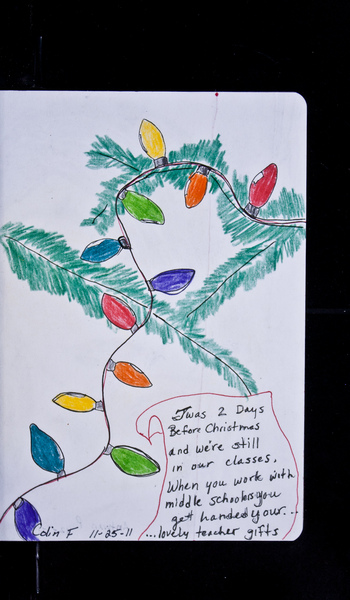 Twas 2 Days
Before Christmas
and we're still
in our classes.
When you work with
middle schoolers you
get handed your...
...lovely teacher gifts
Colin F 11-25-11